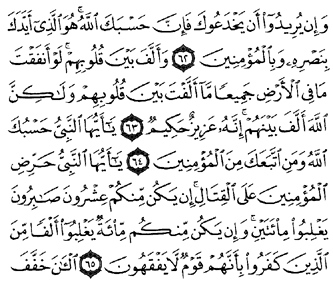 وَإِن يُرِيدُوٓا۟ أَن يَخْدَعُوكَ فَإِنَّ حَسْبَكَ ٱللَّهُ ۚ هُوَ ٱلَّذِىٓ أَيَّدَكَ
بِنَصْرِهِۦ وَبِٱلْمُؤْمِنِينَ ٦٢ وَأَلَّفَ بَيْنَ قُلُوبِهِمْ ۚ لَوْ أَنفَقْتَ
مَا فِى ٱلْأَرْضِ جَمِيعًا مَّآ أَلَّفْتَ بَيْنَ قُلُوبِهِمْ وَلَـٰكِنَّ
ٱللَّهَ أَلَّفَ بَيْنَهُمْ ۚ إِنَّهُۥ عَزِيزٌ حَكِيمٌ ٦٣ يَـٰٓأَيُّهَا ٱلنَّبِىُّ حَسْبُكَ
ٱللَّهُ وَمَنِ ٱتَّبَعَكَ مِنَ ٱلْمُؤْمِنِينَ ٦٤ يَـٰٓأَيُّهَا ٱلنَّبِىُّ حَرِّضِ
ٱلْمُؤْمِنِينَ عَلَى ٱلْقِتَالِ ۚ إِن يَكُن مِّنكُمْ عِشْرُونَ صَـٰبِرُونَ
يَغْلِبُوا۟ مِا۟ئَتَيْنِ ۚ وَإِن يَكُن مِّنكُم مِّا۟ئَةٌ يَغْلِبُوٓا۟ أَلْفًا مِّنَ
ٱلَّذِينَ كَفَرُوا۟ بِأَنَّهُمْ قَوْمٌ لَّا يَفْقَهُونَ ٦٥ ٱلْـَٔـٰنَ خَفَّفَ